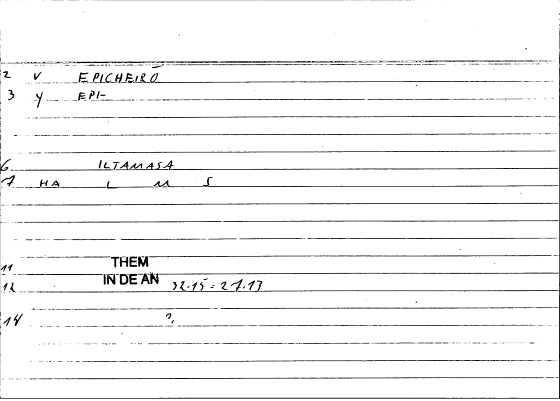 2 V EPICHEIRŌ
3 Y EPI-
6 ILTAMASA
7 HA L M S
11 THEM
12 IN DE AN 32.15 = 27.13
14 ?,